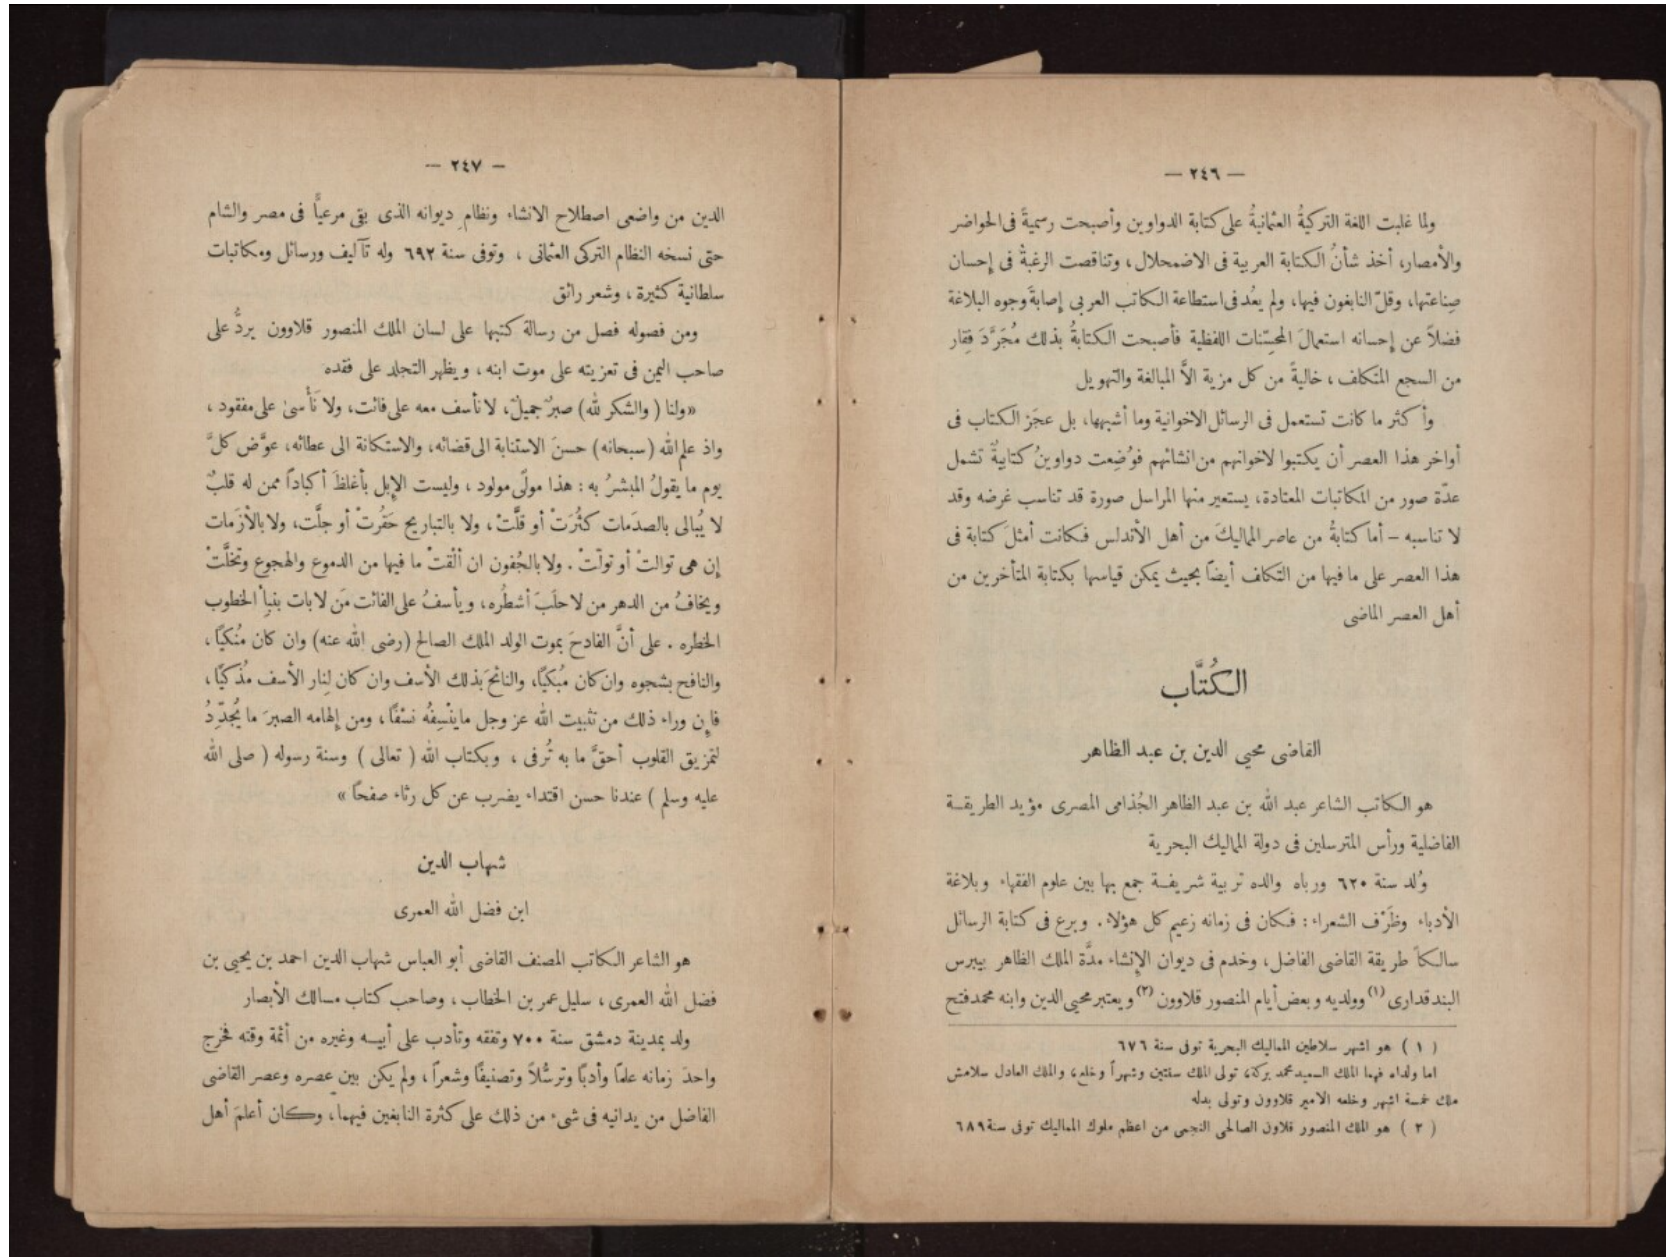 — ٢٤٦ —
ولما غلبت اللغة التركيةُ العثمانيةُ على كتابة الدواوين وأصبحت رسميةً فى الحواضر
والأمصار، أخذ شأنُ الكتابة العربية فى الاضمحلال، وتناقصت الرغبةُ فى إحسان
صِناعتها، وقلّ النابغون فيها، ولم يعُد فى استطاعة الكاتب العربى إصابةَ وجوه البلاغة
فضلاً عن إحسانه استعمالَ المحسّنات اللفظية فأصبحت الكتابةُ بذلك مُجَرَّدَ فِقار
من السجع المتكلف، خاليةً من كل مزية الاَّ المبالغة والتهويل
وأكثر ما كانت تستعمل فى الرسائل الاخوانية وما أشبهها، بل عجَز الكتاب فى
أواخر هذا العصر أن يكتبوا لاخوانهم من انشائهم فوُضِعت دواوينُ كتابيةٌ تشمل
عدّة صور من المكاتبات المعتادة، يستعير منها المراسل صورة قد تناسب غرضه وقد
لا تناسبه – أما كتابةُ من عاصر المماليكَ من أهل الأندلس فكانت أمثلَ كتابة فى
هذا العصر على ما فيها من التكلف أيضاً بحيث يمكن قياسها بكتابة المتأخرين من
أهل العصر الماضى
الكُتَّاب
القاضى محيى الدين بن عبد الظاهر
هو الكاتب الشاعر عبد الله بن عبد الظاهر الجُذامى المصرى مؤيد الطريقة
الفاضلية ورأس المترسلين فى دولة المماليك البحرية
وُلد سنة ٦٢٠ ورباه والده تربية شريفة جمع بها بين علوم الفقهاء وبلاغة
الأدباء وظَرْف الشعراء : فكان فى زمانه زعيم كل هؤلاء. وبرع فى كتابة الرسائل
سالكاً طريقة القاضى الفاضل، وخدم فى ديوان الإنشاء مدَّة الملك الظاهر بيبرس
البندقدارى (١) وولديه وبعض أيام المنصور قلاوون (٢) ويعتبر محيى الدين وابنه محمد فتح
( ١ ) هو اشهر سلاطين المماليك البحرية توفى سنة ٦٧٦
اما ولداه فهما الملك السعيد محمد بركة، تولى الملك سنتين وشهراً وخلع، والملك العادل سلامش
ملك خمسة اشهر وخلعه الامير قلاوون وتولى بدله
( ٢ ) هو الملك المنصور قلاون الصالحى النجمى من اعظم ملوك المماليك توفى سنة ٦٨٩
— ٢٤٧ —
الدين من واضعى اصطلاح الانشاء ونظام ديوانه الذى بقى مرعياً فى مصر والشام
حتى نسخه النظام التركى العثمانى ، وتوفى سنة ٦٩٢ وله تآليف ورسائل ومكاتبات
سلطانية كثيرة ، وشعر رائق
ومن فصوله فصل من رسالة كتبها على لسان الملك المنصور قلاوون يردُّ على
صاحب اليمن فى تعزيته على موت ابنه ، ويظهر التجلد على فقده
«ولنا ( والشكر لله) صبرٌ جميلٌ، لا نأسف معه على فائت، ولا نَأْسىٰ على مفقود ،
واذ علم الله (سبحانه) حسنَ الاستنابة الى قضائه، والاستكانة الى عطائه، عوَّض كلَّ
يوم ما يقولُ المبشرُ به : هذا مولًى مولود ، وليست الإبل بأغلظَ أكباداً ممن له قلبٌ
لا يُبالى بالصدَمات كثُرَتْ أو قلَّتْ، ولا بالتباريح حَقُرتْ أو جلَّت، ولا بالأزَمات
إن هى توالتْ أو تولّتْ . ولا بالجُفون ان ألْقتْ ما فيها من الدموع والهجوع وتخلَّتْ
ويخافُ من الدهر من لا حلَبَ أشطُره، ويأسفُ على الفائت مَن لا بات بنبإِ الخطوب
الخطره . على أنَّ الفادحَ بموت الولد الملك الصالح (رضى الله عنه) وان كان مُنكيًا ،
والنافح بشجوه وان كان مُبكيًا، والنائحَ بذلك الأسف وان كان لنار الأسف مُذكيًا ،
فإِن وراء ذلك من تثبيت الله عز وجل ما ينْسِفُه نسْفًا ، ومن إلهامه الصبرَ ما يُجدِّدُ
لتمزيق القلوب أحقَّ ما به تُرفى ، وبكتاب الله ( تعالى ) وسنة رسوله ( صلى الله
عليه وسلم ) عندنا حسن اقتداء يضرب عن كل رثاء صفحًا »
شهاب الدين
ابن فضل الله العمرى
هو الشاعر الكاتب المصنف القاضى أبو العباس شهاب الدين احمد بن يحيى بن
فضل الله العمرى ، سليل عمر بن الخطاب ، وصاحب كتاب مسالك الأبصار
ولد بمدينة دمشق سنة ٧٠٠ وتفقه وتأدب على أبيه وغيره من أئمة وقته فخرج
واحدَ زمانه علمًا وأدبًا وترسُّلاً وتصنيفًا وشعراً ، ولم يكن بين عصره وعصر القاضى
الفاضل من يدانيه فى شىء من ذلك على كثرة النابغين فيهما، وكان أعلمَ أهل